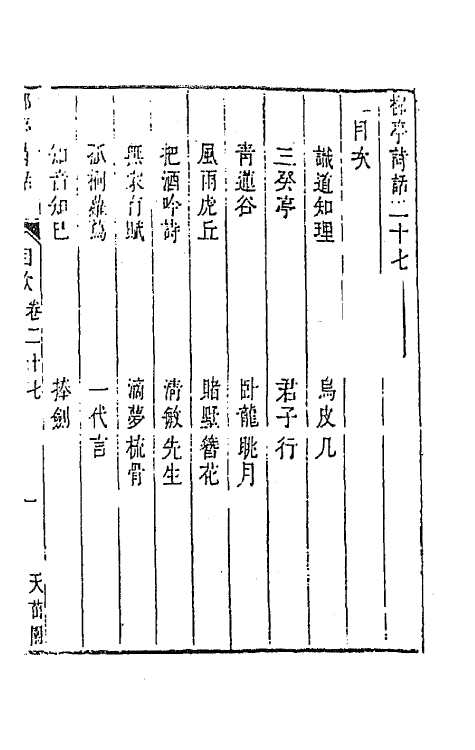 柳亭詩話二十七
目次
誠道知理　烏皮几
三癸亭　君子行
青蓮谷　卧龍眺月
風雨虎丘　賭墅簪花
把酒吟詩　清敏先生
無衣有賦　滴夢梳骨
孤桐蘿蔦　一代言
知音知己　捧劍
目次　卷二十七　一　天茁園